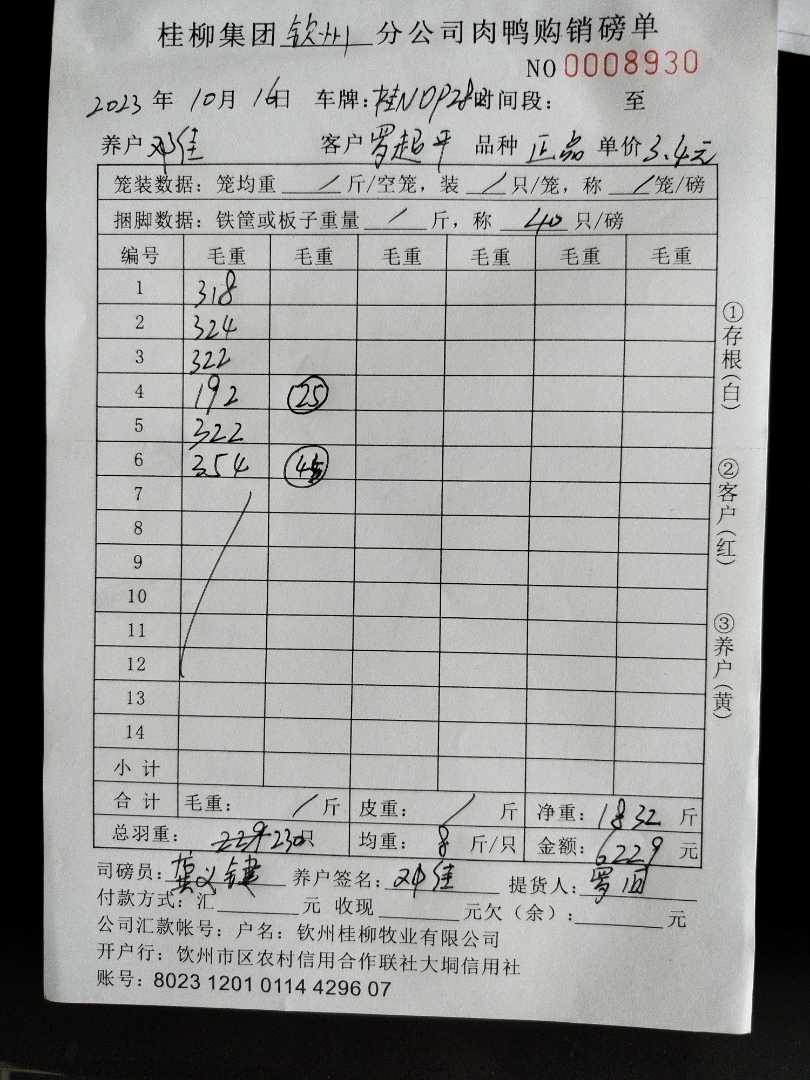 桂柳集团 钦州 分公司肉鸭购销磅单
NO 0008930
2023 年 10 月 16 日 车牌:桂NDP28 时间段: 至
养户 邓佳 客户 罗超平 品种 正品 单价 3.4元
笼装数据: 笼均重 / 斤/空笼, 装 / 只/笼, 称 / 笼/磅
捆脚数据: 铁筐或板子重量 / 斤, 称 40 只/磅
编号 毛重 毛重 毛重 毛重 毛重 毛重
1 318
2 324
3 322
4 192 25
5 322
6 354 45
7
8
9
10
11
12
13
14
小计
合计 毛重: / 斤 皮重: / 斤 净重: 1832 斤
总羽重: 229 230 只 均重: 8 斤/只 金额: 6229 元
司磅员: 养户签名: 邓佳 提货人: 罗
付款方式: 汇 元 收现 元欠(余): 元
公司汇款帐号: 户名: 钦州桂柳牧业有限公司
开户行: 饮州市区农村信用合作联社大垌信用社
账号: 8023 1201 0114 4296 07
①存根(白)
②客户(红)
③养户(黄)